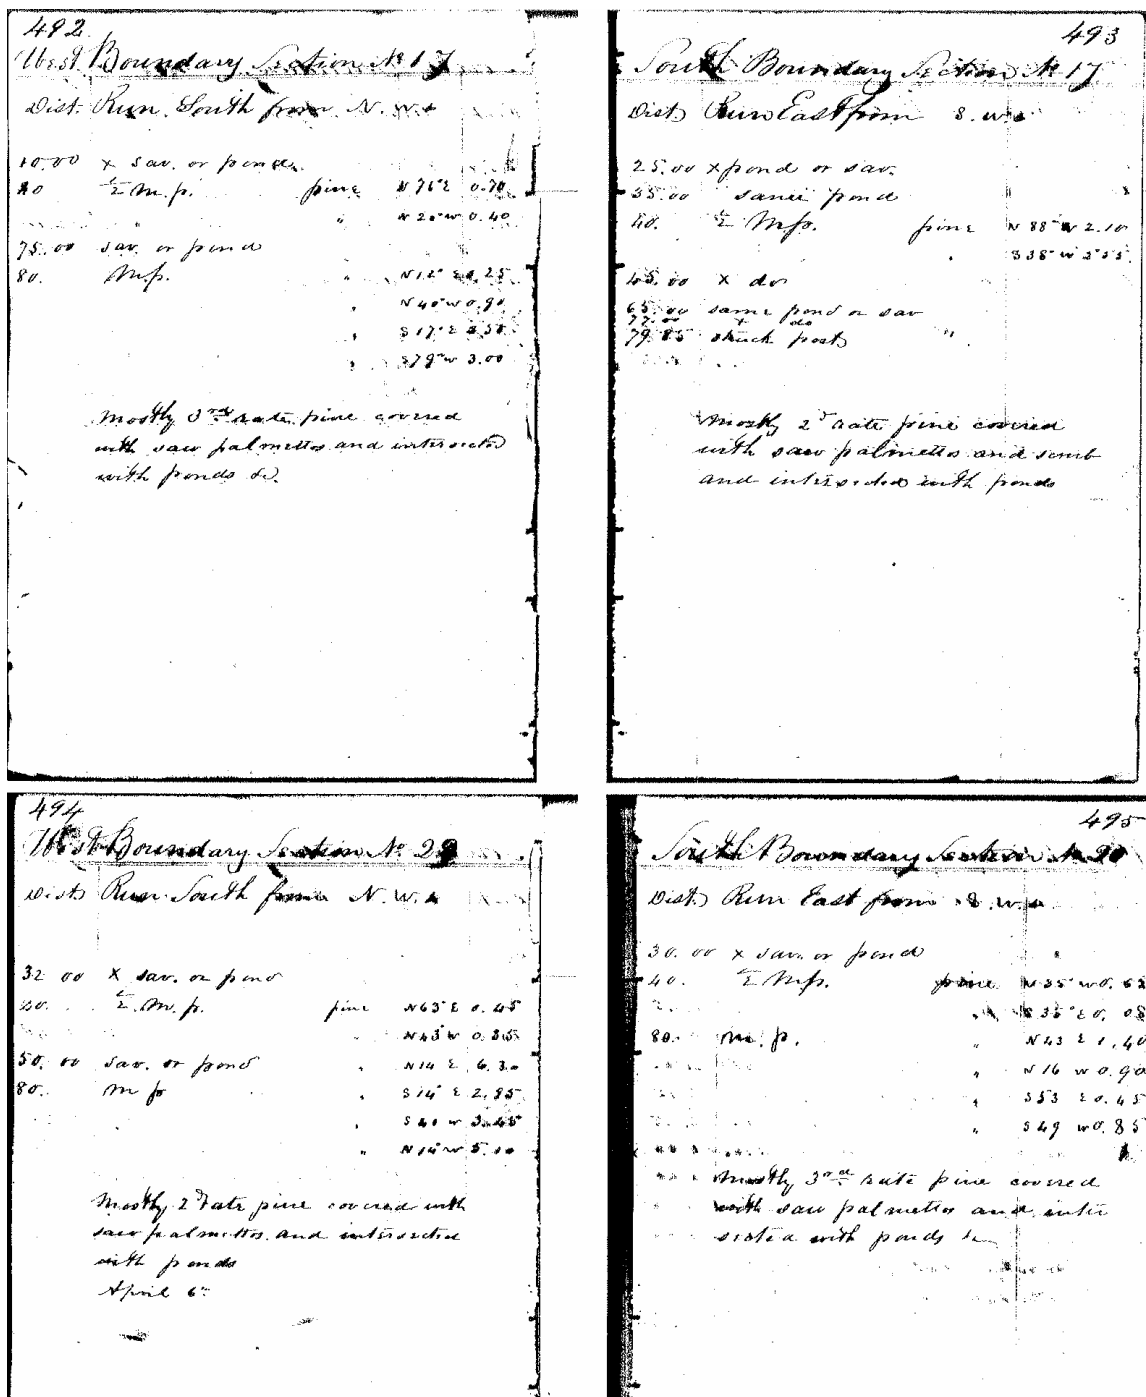 492
West Boundary Section No 17
Dist. Run South from N. W.
10.00 x sav. or pond
40 ½ M.p. pine N 76 E 0.70
" N 20 W 0.40
75.00 sav. or pond
80. M.p. " N 12 E 0.25
" N 40 W 0.90
" S 17 E
" S 79 W 3.00
Mostly 3rd rate pine covered
with saw palmettos and intersected
with ponds &c.
493
South Boundary Section No 17
Dist. Run East from S. W.
25.00 x pond or sav.
35.00 same pond
40. ½ M.p. pine N 88 W 2.10
" S 38 W 2.55
45.00 x do
65.00 same pond or sav
77.00 x do
79.85 struck post "
Mostly 2d rate pine covered
with saw palmettos and scrub
and intersected with ponds
494
West Boundary Section No
Dist. Run South from N. W.
32 00 x sav. or pond
40. ½ M.p. pine N 63 E 0.45
N 43 W
50.00 sav. or pond " N 14 E 6.30
80. M p " S 14 E 2.85
S 40 W 3.45
" N 14 W
Mostly 2d rate pine covered with
saw palmettos and intersected
with ponds
April 6th
495
South Boundary Section No 20
Dist. Run East from S. W.
30.00 x sav. or pond
40. ½ M.p. pine N 35 W 0.62
" S 35 E 0.08
80. M.p. " N 43 E 1.40
" N 16 W 0.90
" S 53 E 0.45
" S 49 W 0.85
Mostly 3rd rate pine covered
with saw palmettos and inter
sected with ponds &c